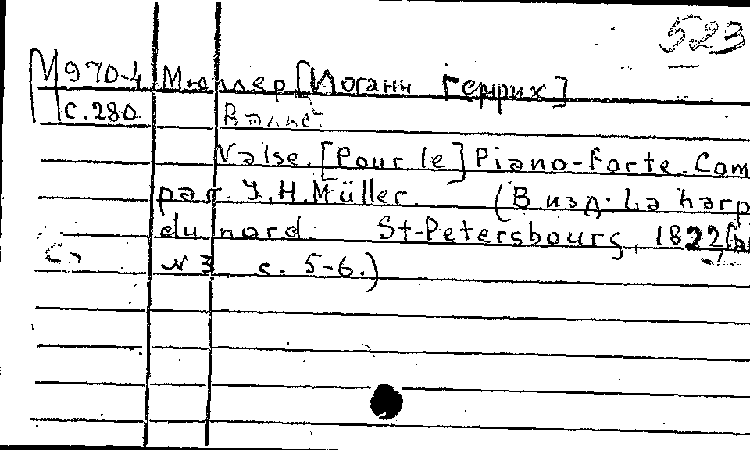 523
М970-4 Мюллер [Иоганн Генрих]
с.280 Вальс.
Valse. [Pour le] Piano-forte. Com
par J. H. Müller. (В изд. La harp
du nord. St-Petersbourg, 1822
№ 3 с. 5-6.)